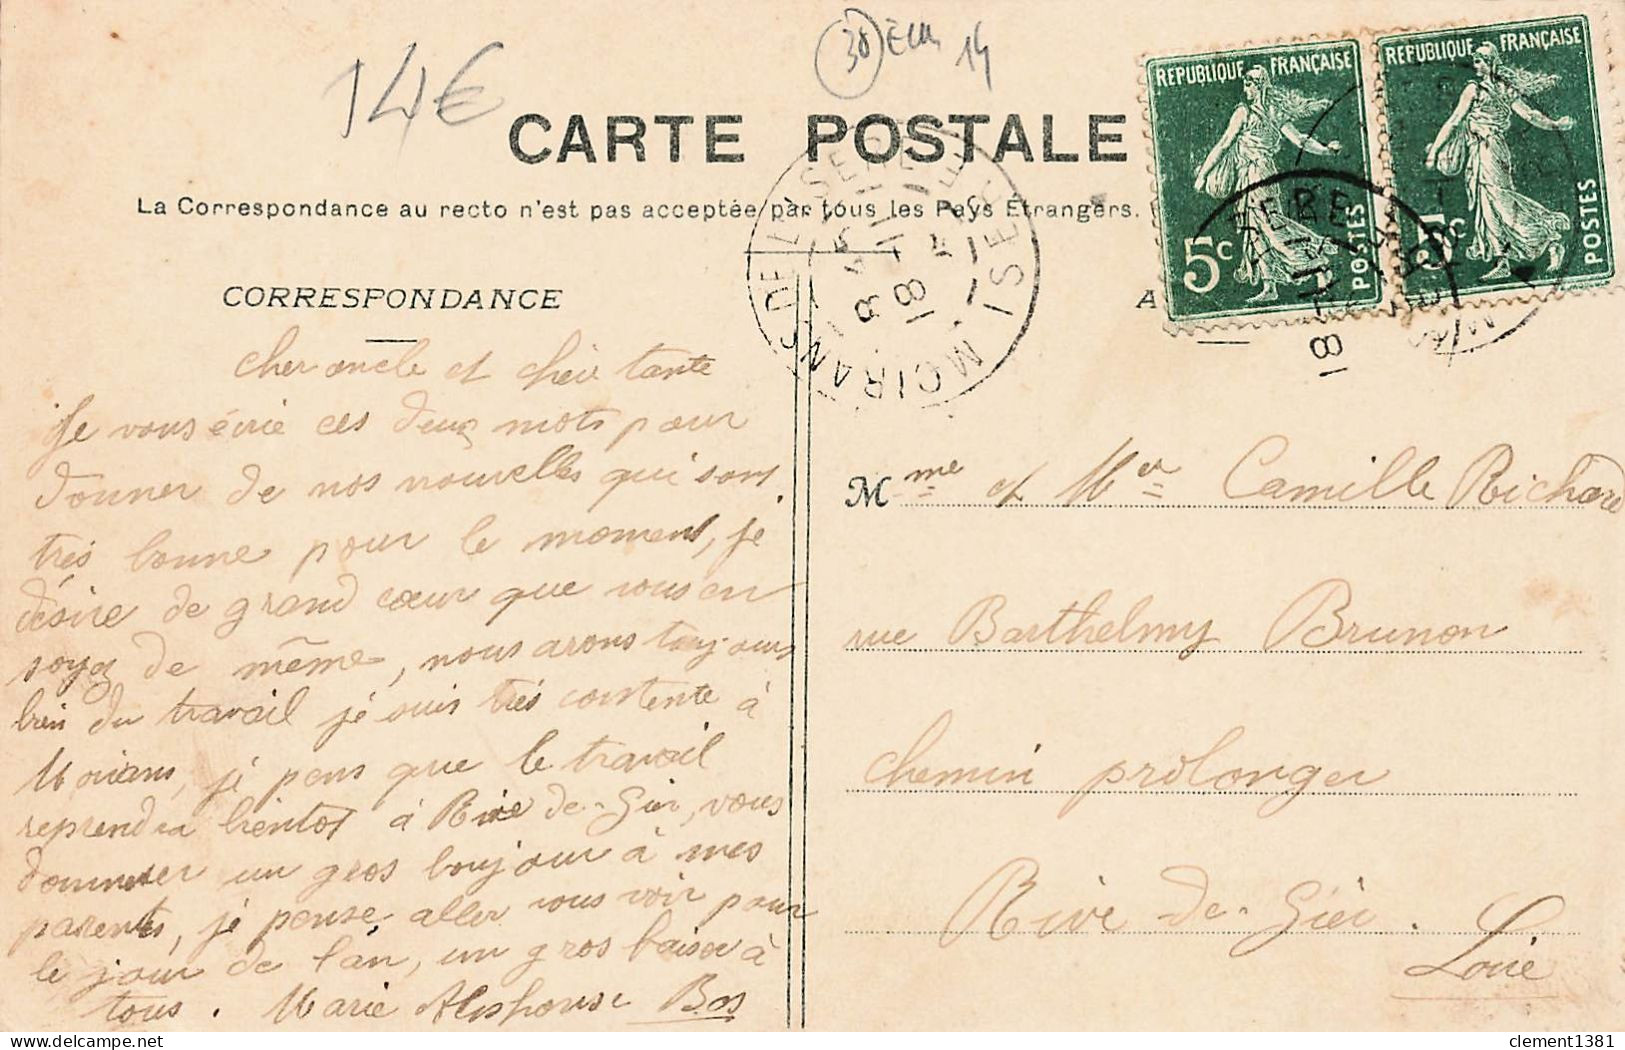 14€
38 Ecu 14
CARTE POSTALE
La Correspondance au recto n'est pas acceptée par tous les Pays Étrangers.
REPUBLIQUE FRANÇAISE
5c POSTES
REPUBLIQUE FRANÇAISE
5c POSTES
MOIRANS DE L'ISERE
ISERE
CORRESPONDANCE
A
Cher oncle et chère tante
Je vous écrie ces deux mots pour
donner de nos nouvelles qui sont
très bonne pour le moment, je
désire de grand cœur que vous en
soyez de même, nous avons toujours
bien du travail je suis très contente à
Moirans, je pens que le travail
reprendra bientot à Rive de-Gier, vous
donnerer un gros boujour à mes
parents, je pense aller vous voir pour
le jour de l'an, un gros baiser à
tous. Marie Alphonse Bos
Mme et Mer Camille Richard
rue Barthelmy Brunon
chemin prolonger
Rive-de-Gier.
Loire
clement1381